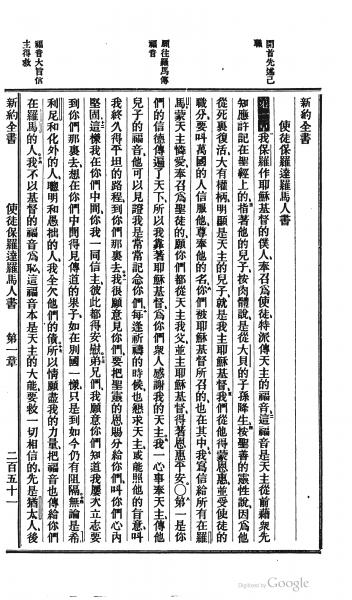 開首先述己
職
願往羅馬傳
福音
福音大旨信
主得救
新約全書
使徒保羅達羅馬人書
第一章 我保羅作耶穌基督的僕人、奉召為使徒、特派傳天主的福音、這福音是天主從前藉衆先
知應許記在聖經上的、指著他的兒子、按肉體說、是從大貝的子孫降生、按聖善的靈性說、因為他
從死裏復活、大有權柄、明顯是天主的兒子、就是我主耶穌基督、我們從他得蒙恩惠、並受使徒的
職分、要叫萬國的人信服他、尊奉他的名、你們被耶穌基督所召的、也在其中、我寫信給所有在羅
馬蒙天主憐愛、奉召為聖徒的、願你們都從天主我父、並主耶穌基督、得著恩惠平安、○第一、是你
們的信德傳遍了天下、所以我靠著耶穌基督、為你們衆人感謝我的天主、我一心事奉天主、傳他
兒子的福音、他可以見證我是常常記念你們、每逢祈禱的時候、也懇求天主、或能照他的旨意、叫
我終久得平坦的路程、到你們那裏去、我很願意見你們、要把聖靈的恩賜分給你們、叫你們心內
堅固、這樣我在你們中間、你我一同信主、彼此都得安慰、弟兄們、我願意你們知道、我屢次立志要
到你們那裏去、想在你們中間得見傳道的果子、如在別國一樣、只是到如今仍有阻隔、無論是希
利尼和化外的人、聰明和愚拙的人、我全欠他們的債、所以情願盡我的力量、把福音也傳給你們
在羅馬的人、我不以基督的福音為恥、這福音本是天主的大能、要救一切相信的、先是猶太人、後
新約全書 使徒保羅達羅馬人書 第一章 二百五十一
Digitized by Google